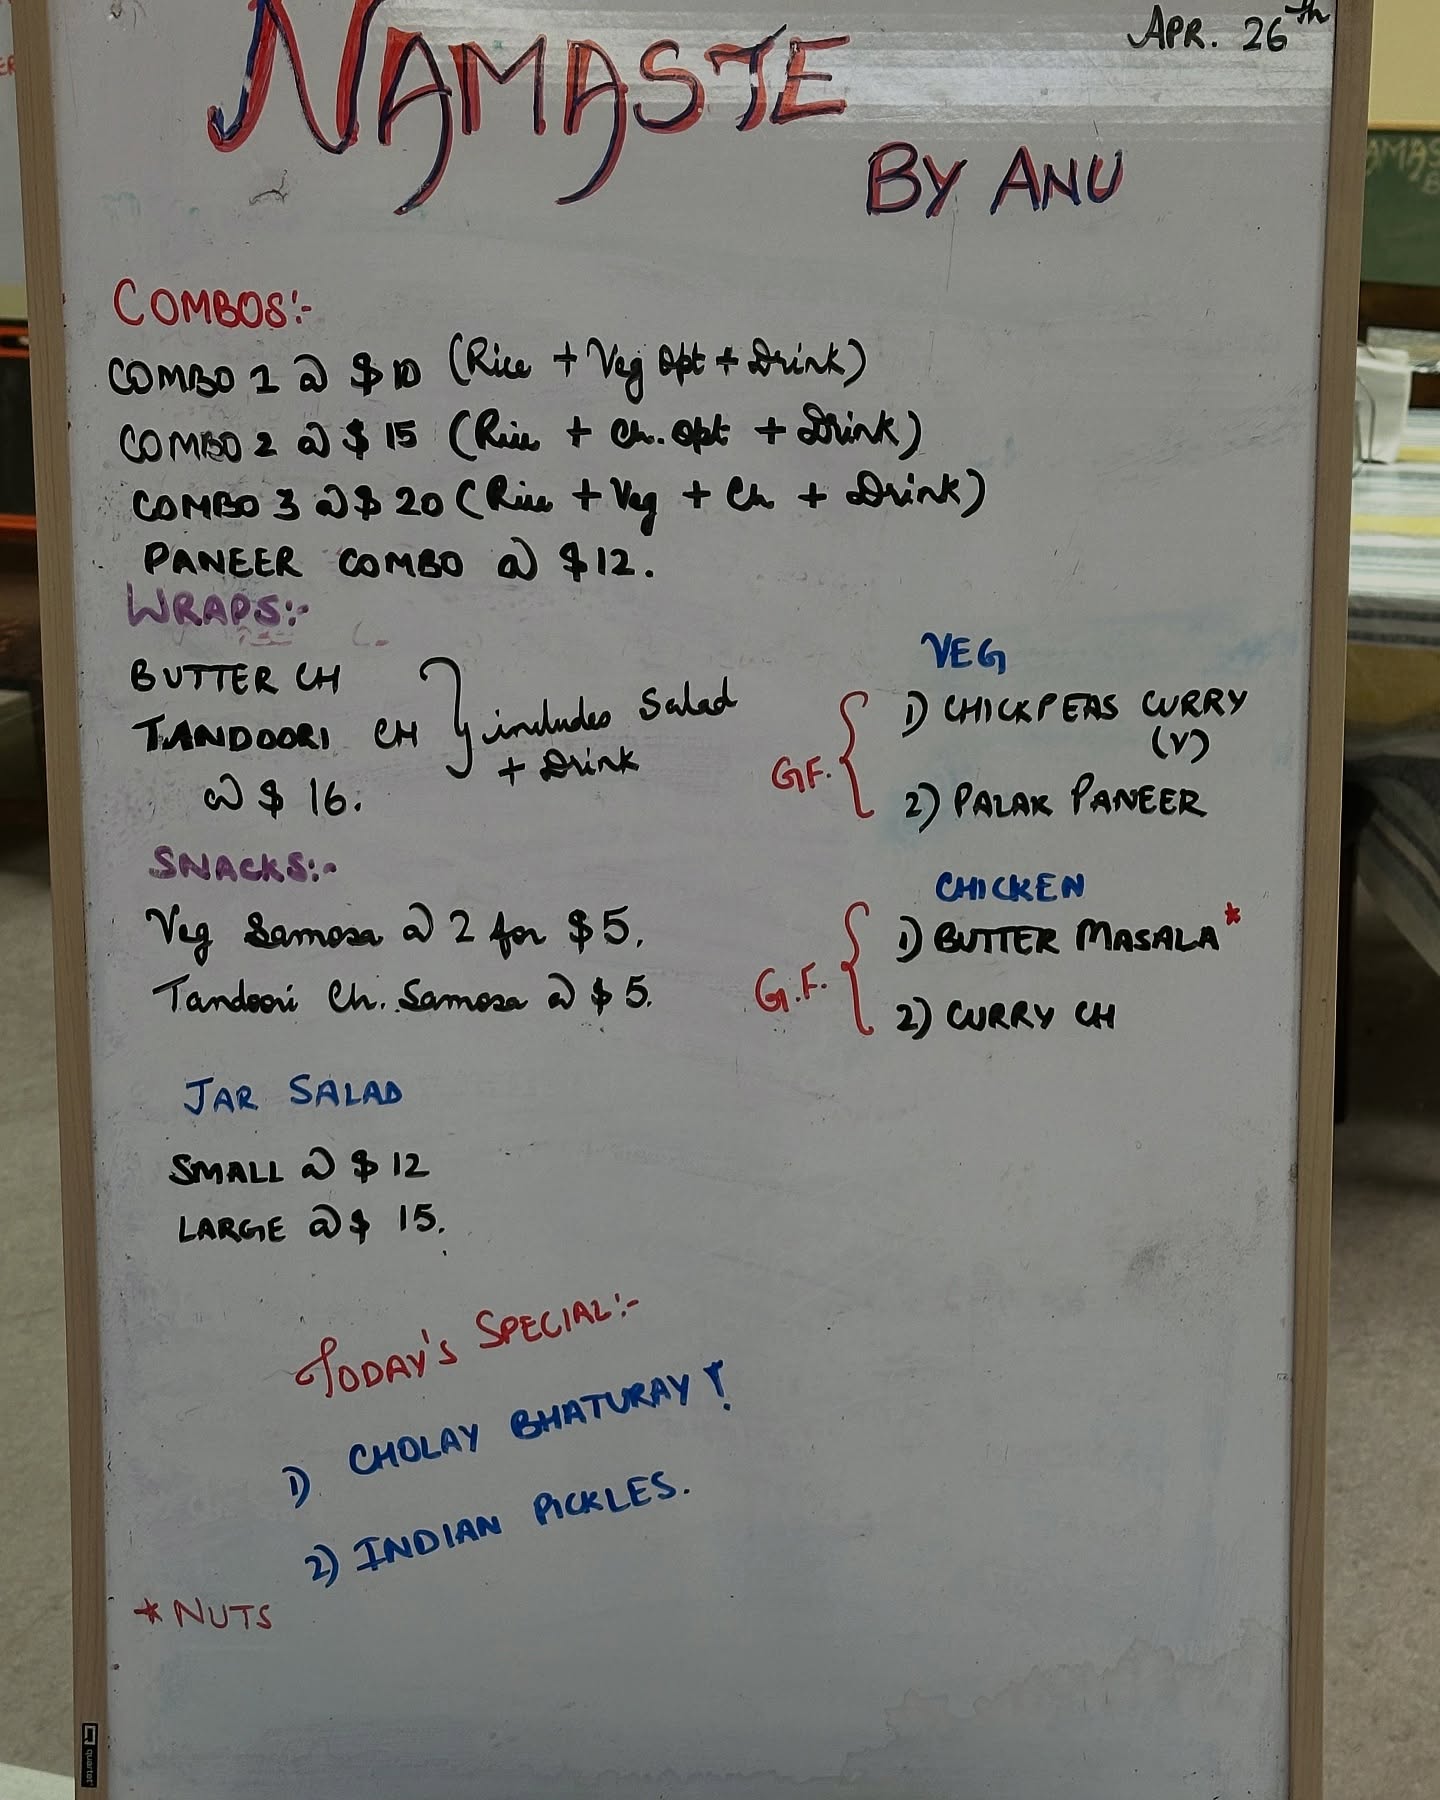 APR. 26th
NAMASTE
BY ANU
COMBOS:-
COMBO 1 @ $10 (Rice + Veg Opt + Drink)
COMBO 2 @ $15 (Rice + Ch. Opt + Drink)
COMBO 3 @ $20 (Rice + Veg + Ch + Drink)
PANEER COMBO @ $12.
WRAPS:-
BUTTER CH
TANDOORI CH
@ $16.
includes Salad
+ Drink
SNACKS:-
Veg Samosa @ 2 for $5.
Tandoori Ch. Samosa @ $5.
JAR SALAD
SMALL @ $12
LARGE @ $15.
VEG
G.F.
1) CHICKPEAS CURRY
(V)
2) PALAK PANEER
CHICKEN
G.F.
1) BUTTER MASALA*
2) CURRY CH
TODAY'S SPECIAL:-
1) CHOLAY BHATURAY!
2) INDIAN PICKLES.
* NUTS
quartet